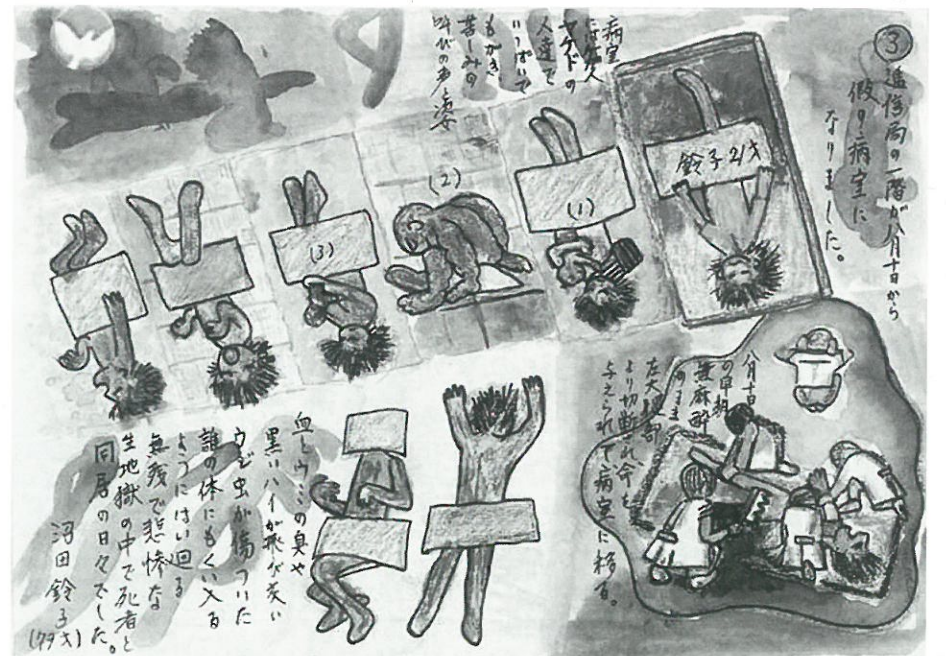 ③
逓信局の一階が八月十日から
假の病室に
なりました。
病室
には
ヤケドの
人達で
いっぱいで
もがき
苦しみの
叫びの声
鈴子21才
(1)
(2)
(3)
八月十日
の早朝
無麻酔
のまま
左大腿部
より切断され、命を
与えられて病室に移る。
血とウミの臭や
黒いハイが飛び交い
ウジ虫が傷ついた
誰の体にもくい入る
ようにはい廻る
無残で悲惨な
生地獄の中で死者と
同居の日々でした。
沼田鈴子